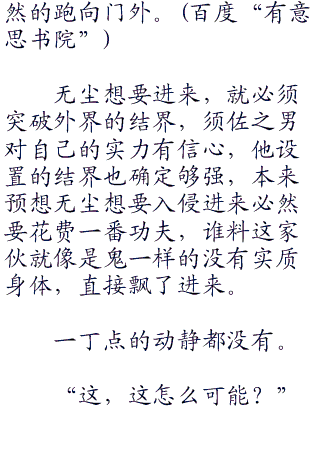 然的跑向门外。(百度“有意
思书院”)
无尘想要进来，就必须
突破外界的结界，须佐之男
对自己的实力有信心，他设
置的结界也确定够强，本来
预想无尘想要入侵进来必然
要花费一番功夫，谁料这家
伙就像是鬼一样的没有实质
身体，直接飘了进来。
一丁点的动静都没有。
“这，这怎么可能？”